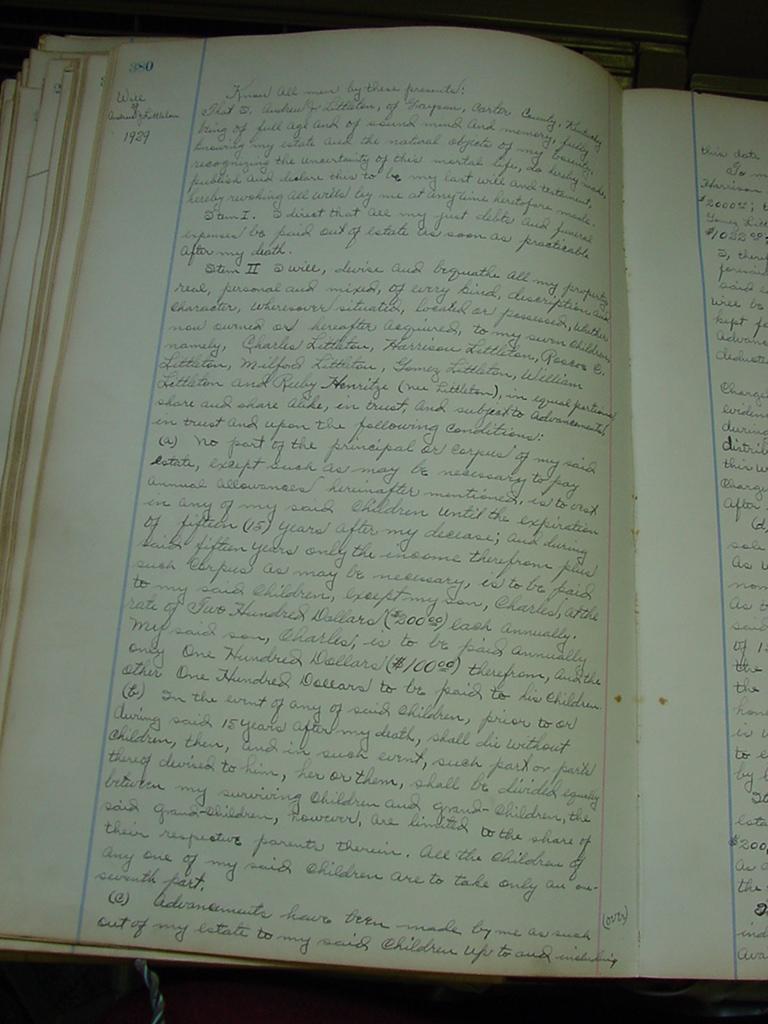 380
Will
of
Andrew J Littleton
1929
Know all men by these presents:
That I, Andrew J Littleton, of Grayson, Carter County, Kentucky
being of full age and of sound mind and memory, fully
knowing my estate and the natural objects of my bounty,
recognizing the uncertainty of this mortal life, do hereby make,
publish and declare this to be my last will and testament,
hereby revoking all wills by me at any time heretofore made.
Item I. I direct that all my just debts and funeral
expenses be paid out of estate as soon as practicable
after my death.
Item II I will, devise and bequathe all my property
real, personal and mixed, of every kind, description and
character, wheresoever situated, located or possessed, whether
now owned or hereafter acquired, to my seven children
namely, Charles Littleton, Harrison Littleton, Roscoe C.
Littleton, Milford Littleton, Gomez Littleton, William
Littleton and Ruby Henritze (nee Littleton), in equal portions
share and share alike, in trust, and subject to advancements,
in trust and upon the following conditions:
(a) No part of the principal or corpus of my said
estate, except such as may be necessary to pay
annual allowances hereinafter mentioned, is to vest
in any of my said children until the expiration
of fifteen (15) years after my decease; and during
said fifteen years only the income therefrom plus
such corpus as may be necessary, is to be paid
to my said children, except my son, Charles, at the
rate of Two Hundred Dollars ($200.00) each annually.
My said son, Charles, is to be paid annually
only One Hundred Dollars ($100.00) therefrom, and the
other One Hundred Dollars to be paid to his children.
(b) In the event of any of said children, prior to or
during said 15 years after my death, shall die without
children, then, and in such event, such part or parts
thereof devised to him, her or them, shall be divided equally
between my surviving children and grand-children, the
said grand-children, however, are limited to the share of
their respective parents therein. All the children of
any one of my said children are to take only an one-
seventh part.
(c) Advancements have been made by me as such
out of my estate to my said children up to and including
(over)
this date
To m
Harrison
$2000.00; t
Gomez Litt
$1022.00;
I, ther
said e
will be
kept fo
advanc
deducte
Charge
eviden
during
distrib
this w
Charge
after
(d)
sole
as
nom
as t
said
of 15
the
the
hom
is
to e
by
It
esta
$200.
as
the
ind
ava